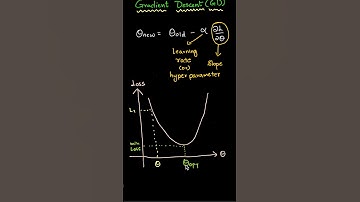 Gradient Descent (GD)
θnew = θold - α ∂L/∂θ
Learning
rate
(or)
hyper parameter
Slope
Loss
L1
min
Loss
θ
θopt
θ